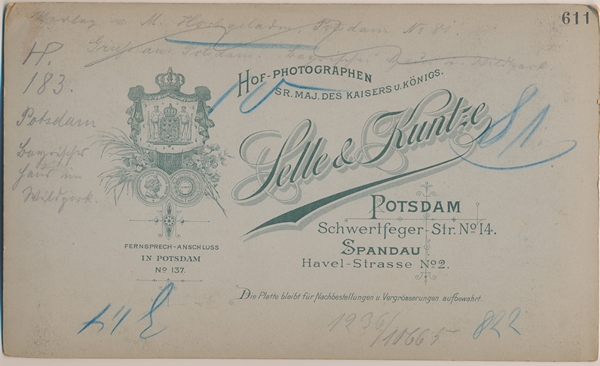 611
Verlag v. M. Potsdam No 81.
Gruß aus Potsdam. Bayrisches Haus Wildpark.
H.
183.
Potsdam
Bayrisches
Haus im
Wildpark.
10
81.
HOF-PHOTOGRAPHEN
SR. MAJ. DES KAISERS U. KÖNIGS.
Selle & Kuntze
POTSDAM
Schwertfeger-Str. No 14.
SPANDAU
Havel-Strasse No 2.
FERNSPRECH-ANSCHLUSS
IN POTSDAM
No 137.
Die Platte bleibt für Nachbestellungen u. Vergrösserungen aufbewahrt.
1936/10665
822